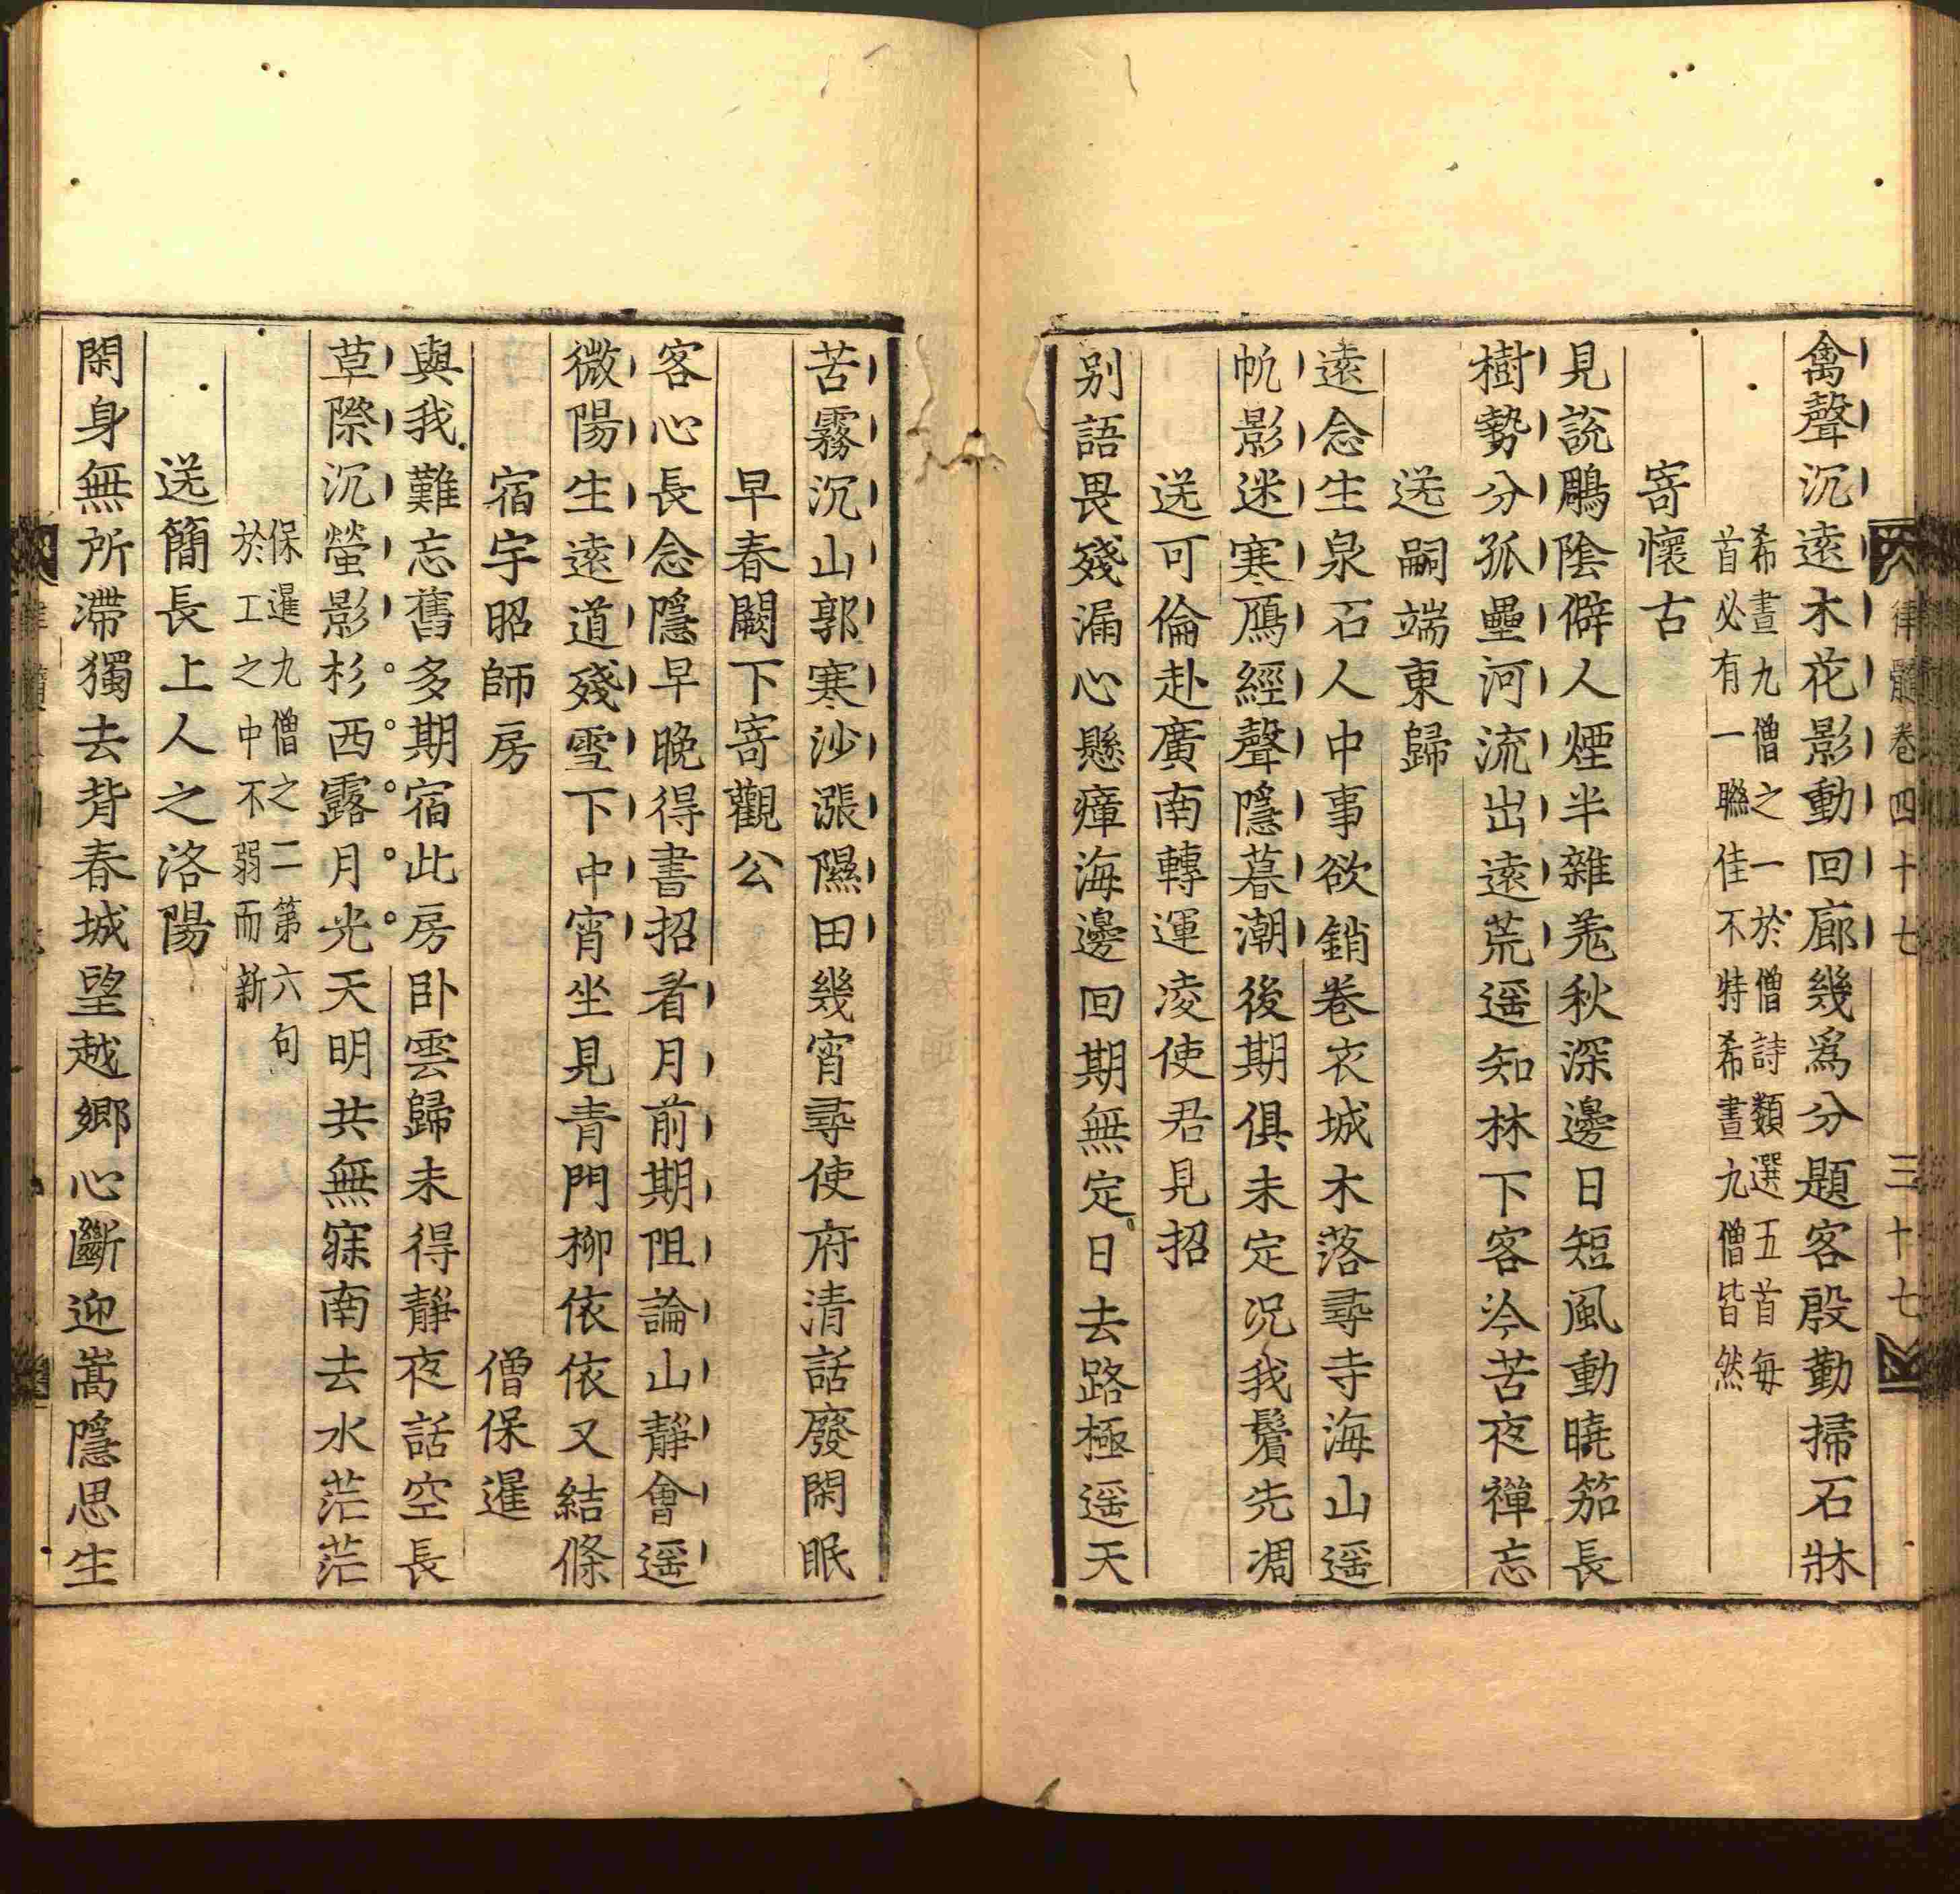 律髓卷四十七 三十七
禽聲沉遠木花影動回廊幾爲分題客殷勤掃石牀
希晝九僧之一於僧詩類選五首每
首必有一聯佳不特希晝九僧皆然
寄懷古
見說鵰陰僻人煙半雜羌秋深邊日短風動曉笳長
樹勢分孤壘河流出遠荒遥知林下客今苦夜禪忘
送嗣端東歸
遠念生泉石人中事欲銷卷衣城木落尋寺海山遥
帆影迷寒鴈經聲隱暮潮後期俱未定况我鬢先凋
送可倫赴廣南轉運凌使君見招
别語畏殘漏心懸瘴海邊回期無定日去路極遥天
苦霧沉山郭寒沙漲隰田幾宵尋使府清話廢閑眠
早春闕下寄觀公
客心長念隱早晚得書招看月前期阻論山靜會遥
微陽生遠道殘雪下中宵坐見青門柳依依又結條
宿宇昭師房 僧保暹
與我難忘舊多期宿此房卧雲歸未得靜夜話空長
草際沉螢影杉西露月光天明共無寐南去水茫茫
保暹九僧之二第六句
於工之中不弱而新
送簡長上人之洛陽
閑身無所滯獨去背春城望越鄉心斷迎嵩隱思生